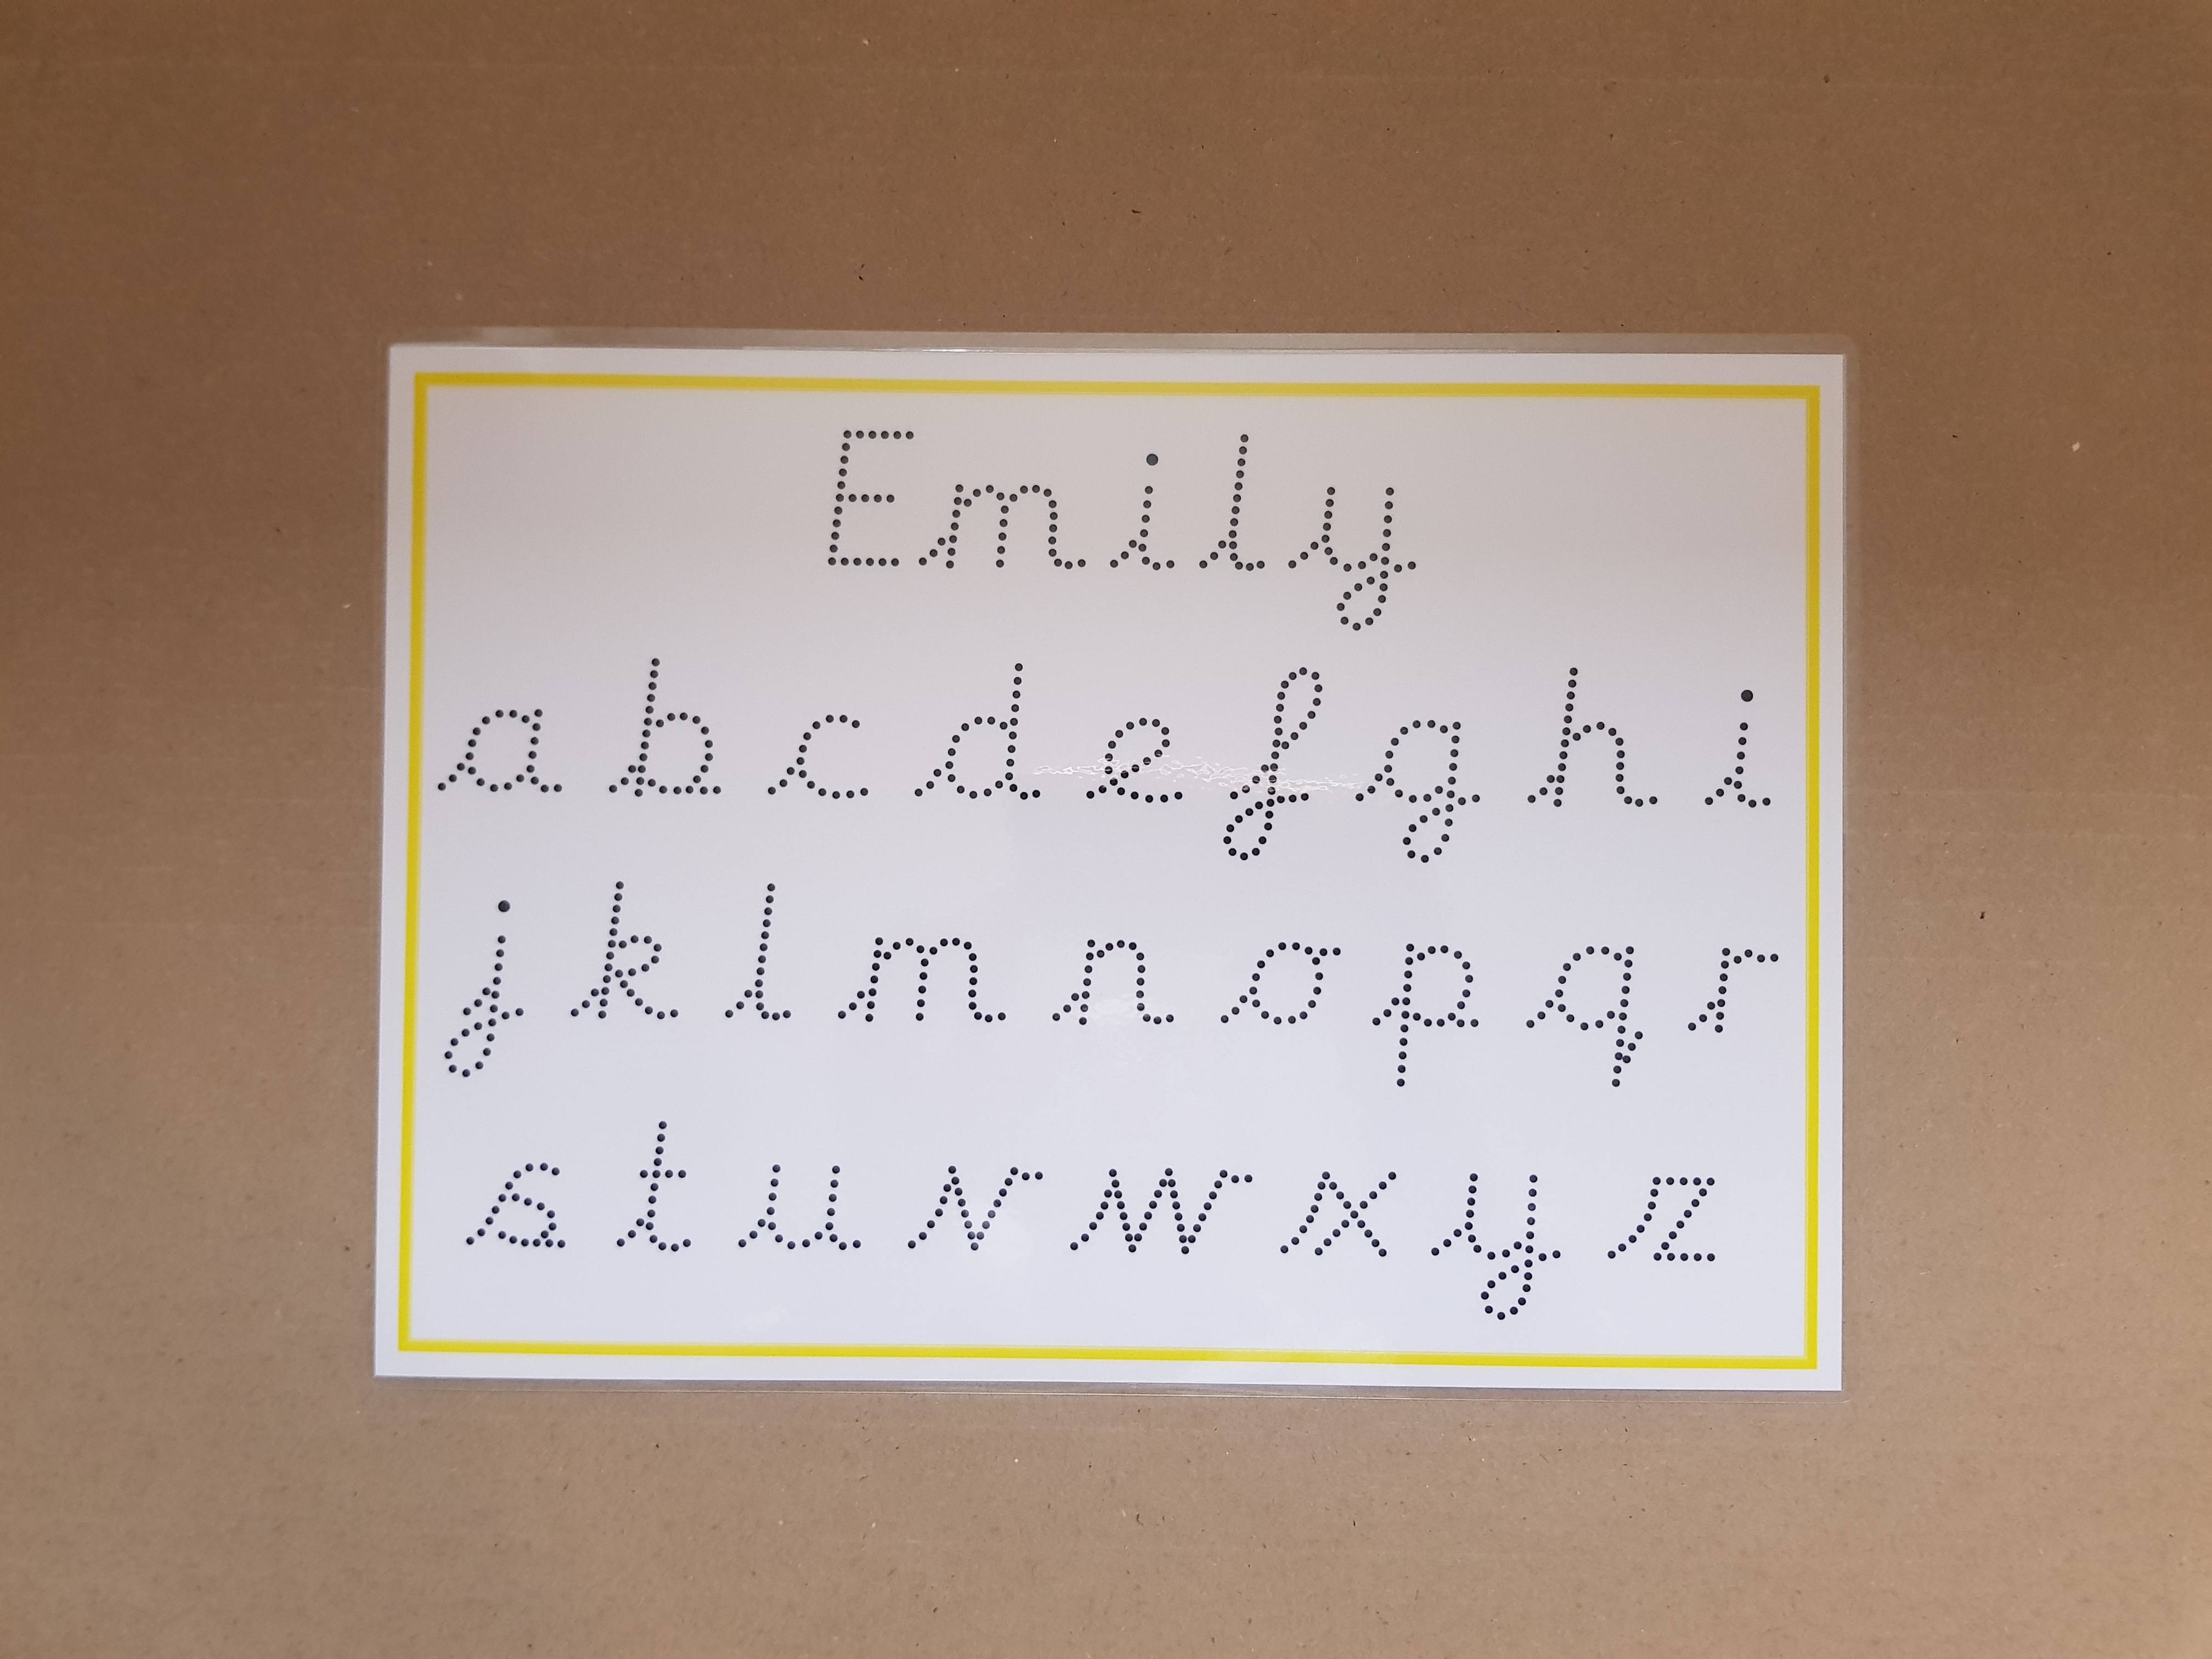 Emily
a b c d e f g h i
j k l m n o p q r
s t u v w x y z